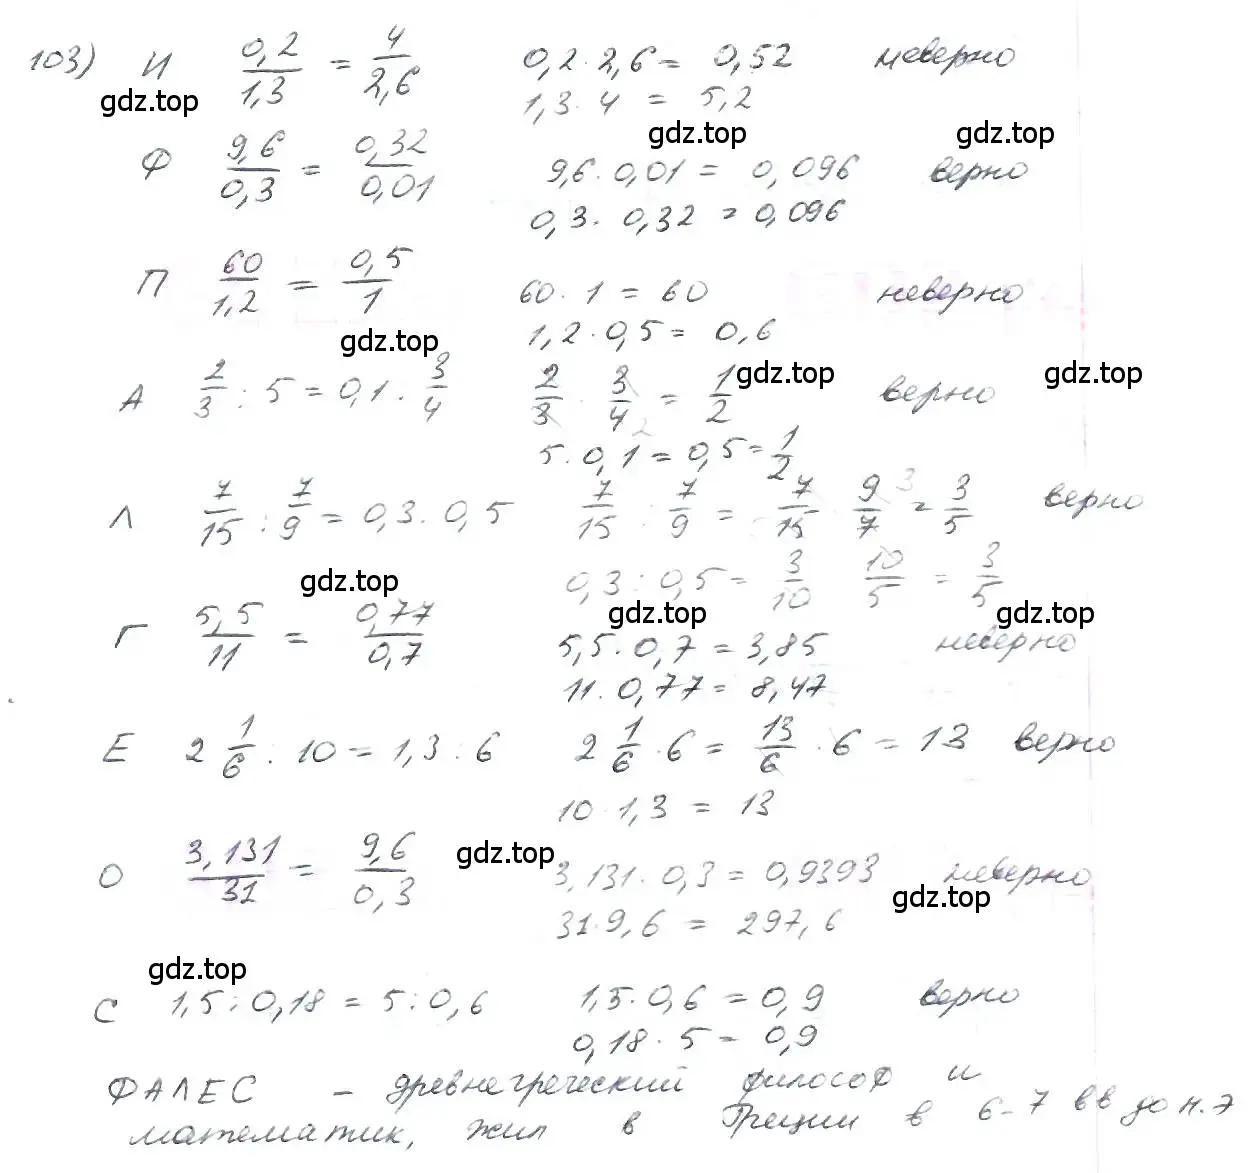 103) И 0,2/1,3 = 4/2,6 0,2 · 2,6 = 0,52 неверно
1,3 · 4 = 5,2
gdz.top
gdz.top gdz.top
Ф 9,6/0,3 = 0,32/0,01 9,6 · 0,01 = 0,096 верно
0,3 · 0,32 = 0,096
П 60/1,2 = 0,5/1 60 · 1 = 60 неверно
1,2 · 0,5 = 0,6
gdz.top
gdz.top gdz.top
А 2/3 : 5 = 0,1 : 3/4 2/3 · 3/4 2 = 1/2 верно
5 · 0,1 = 0,5 = 1/2
Л 7/15 : 7/9 = 0,3 : 0,5 7/15 : 7/9 = 7/15 · 9/7 3 = 3/5 верно
0,3 : 0,5 = 3/10 10/5 = 3/5
gdz.top
gdz.top gdz.top
Г 5,5/11 = 0,77/0,7 5,5 · 0,7 = 3,85 неверно
11 · 0,77 = 8,47
Е 2 1/6 : 10 = 1,3 : 6 2 1/6 · 6 = 13/6 · 6 = 13 верно
10 · 1,3 = 13
О 3,131/31 = 9,6/0,3 gdz.top 3,131 · 0,3 = 0,9393 неверно
gdz.top
31 · 9,6 = 297,6
gdz.top
С 1,5 : 0,18 = 5 : 0,6 1,5 · 0,6 = 0,9 верно
0,18 · 5 = 0,9
ФАЛЕС – древнегреческий философ и
математик, жил в Греции в 6-7 вв до н.э